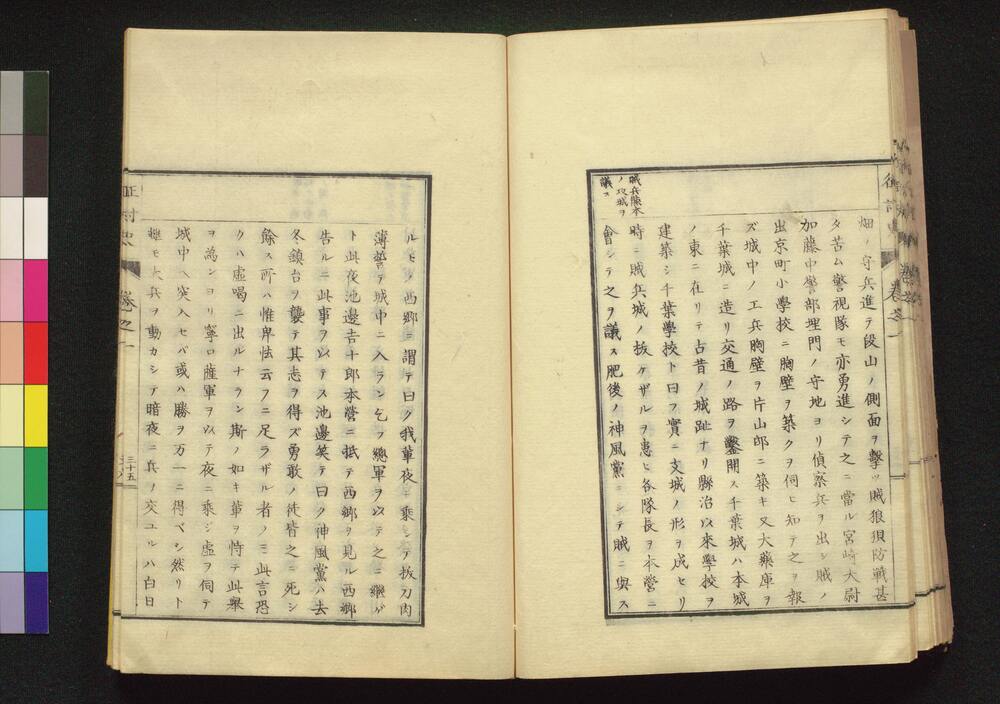 賊兵熊本
ノ攻城ヲ
議ス
畑 守兵進テ段山ノ側面ヲ擊ツ賊狼狽防戰甚
タ苦ム警視隊モ亦勇進シテ之ニ當ル宮崎大尉
加藤中警部埋門ノ守地ヨリ偵察兵ヲ出シ賊ノ
出京町小學校ニ胸壁ヲ築クヲ伺ヒ知テ之ヲ報
ズ城中ノ工兵胸壁ヲ片山邸ニ築キ又大藥庫ヲ
千葉城ニ造リ交通ノ路ヲ鑿開ス千葉城ハ本城
ノ東ニ在リテ古昔ノ城趾ナリ縣治以來學校ヲ
建築シ千葉學校ト曰フ實ニ支城ノ形ヲ成セリ
時ニ賊兵城ノ拔ケザルヲ患ヒ各隊長ヲ本營ニ
會シテ之ヲ議ス肥後ノ神風黨ニシテ賊ニ與ス
ルモノ西鄉ニ謂テ曰ク我輩夜ニ乘シテ拔刀肉
薄誓テ城中ニ入ラン乞フ總軍ヲ以テ之ニ繼ゲ
ト此夜池邊吉十郎本營ニ抵テ西鄉ヲ見ル西鄉
告ルニ此事ヲ以テス池邊笑テ曰ク神風黨ハ去
冬鎮台ヲ襲テ其志ヲ得ズ勇敢ノ徒皆之ニ死シ
餘ス所ハ惟卑怯云フニ足ラザル者ノミ此言恐
クハ虛喝ニ出ルナラン斯ノ如キ輩ヲ恃テ此舉
ヲ為ンヨリ寧ロ薩軍ヲ以テ夜ニ乘シ虛ヲ伺テ
城中ヘ突入セバ或ハ勝ヲ万一ニ得ベシ然リト
雖モ大兵ヲ動カシテ暗夜ニ兵ノ交ユルハ白日
卷之一
三十五